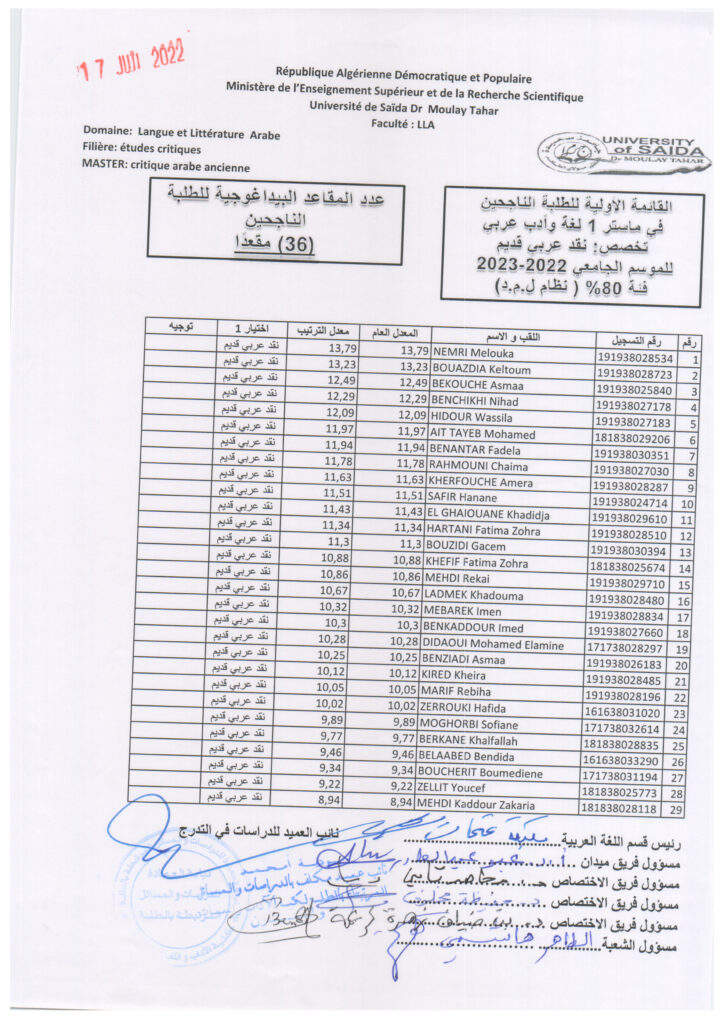 17 JUIL 2022
République Algérienne Démocratique et Populaire
Ministère de l'Enseignement Supérieur et de la Recherche Scientifique
Université de Saïda Dr Moulay Tahar
Faculté : LLA
Domaine: Langue et Littérature Arabe
Filière: études critiques
MASTER: critique arabe ancienne
UNIVERSITY
of SAIDA
Dr MOULAY TAHAR
القائمة الاولية للطلبة الناجحين
في ماستر 1 لغة وأدب عربي
تخصص: نقد عربي قديم
للموسم الجامعي 2022-2023
فئة 80% ( نظام ل.م.د)
عدد المقاعد البيداغوجية للطلبة
الناجحين
(36) مقعدًا
رقم رقم التسجيل اللقب و الاسم المعدل العام معدل الترتيب اختيار 1 توجيه
1 191938028534 NEMRI Melouka 13,79 13,79 نقد عربي قديم
2 191938028723 BOUAZDIA Keltoum 13,23 13,23 نقد عربي قديم
3 191938025840 BEKOUCHE Asmaa 12,49 12,49 نقد عربي قديم
4 191938027178 BENCHIKHI Nihad 12,29 12,29 نقد عربي قديم
5 191938027183 HIDOUR Wassila 12,09 12,09 نقد عربي قديم
6 181838029206 AIT TAYEB Mohamed 11,97 11,97 نقد عربي قديم
7 191938030351 BENANTAR Fadela 11,94 11,94 نقد عربي قديم
8 191938027030 RAHMOUNI Chaima 11,78 11,78 نقد عربي قديم
9 191938028287 KHERFOUCHE Amera 11,63 11,63 نقد عربي قديم
10 191938024714 SAFIR Hanane 11,51 11,51 نقد عربي قديم
11 191938029610 EL GHAIOUANE Khadidja 11,43 11,43 نقد عربي قديم
12 191938028510 HARTANI Fatima Zohra 11,34 11,34 نقد عربي قديم
13 191938030394 BOUZIDI Gacem 11,3 11,3 نقد عربي قديم
14 181838025674 KHEFIF Fatima Zohra 10,88 10,88 نقد عربي قديم
15 191938029710 MEHDI Rekai 10,86 10,86 نقد عربي قديم
16 191938028480 LADMEK Khadouma 10,67 10,67 نقد عربي قديم
17 191938028834 MEBAREK Imen 10,32 10,32 نقد عربي قديم
18 191938027660 BENKADDOUR Imed 10,3 10,3 نقد عربي قديم
19 171738028297 DIDAOUI Mohamed Elamine 10,28 10,28 نقد عربي قديم
20 191938026183 BENZIADI Asmaa 10,25 10,25 نقد عربي قديم
21 191938028485 KIRED Kheira 10,12 10,12 نقد عربي قديم
22 191938028196 MARIF Rebiha 10,05 10,05 نقد عربي قديم
23 161638031020 ZERROUKI Hafida 10,02 10,02 نقد عربي قديم
24 171738032614 MOGHORBI Sofiane 9,89 9,89 نقد عربي قديم
25 181838028835 BERKANE Khalfallah 9,77 9,77 نقد عربي قديم
26 161638033290 BELAABED Bendida 9,46 9,46 نقد عربي قديم
27 171738031194 BOUCHERIT Boumediene 9,34 9,34 نقد عربي قديم
28 181838025773 ZELLIT Youcef 9,22 9,22 نقد عربي قديم
29 181838028118 MEHDI Kaddour Zakaria 8,94 8,94 نقد عربي قديم
نائب العميد للدراسات في التدرج
رئيس قسم اللغة العربية
مسؤول فريق ميدان
مسؤول فريق الاختصاص
مسؤول فريق الاختصاص
مسؤول فريق الاختصاص
مسؤول الشعبة